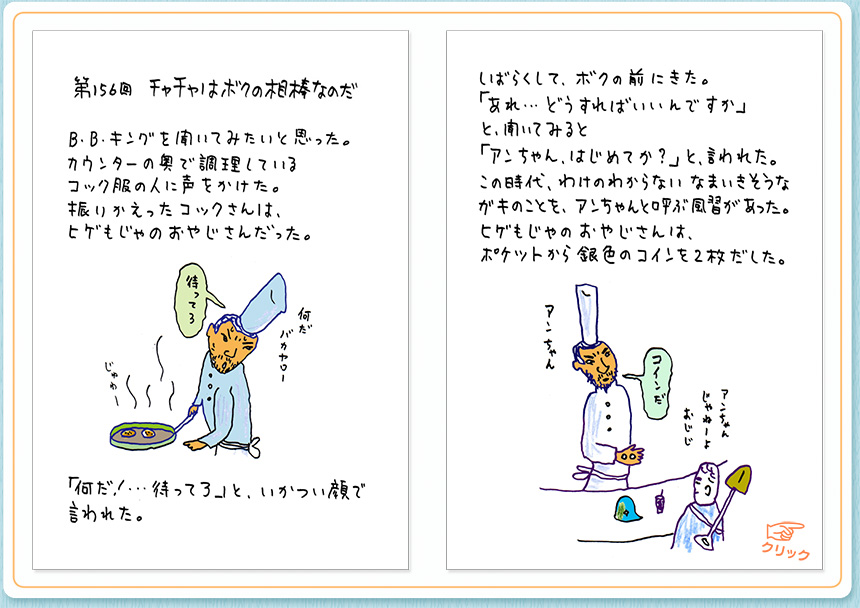 第156回 チャチャはボクの相棒なのだ
B.B.キングを聞いてみたいと思った。
カウンターの奥で調理している
コック服の人に声をかけた。
振りかえったコックさんは、
ヒゲもじゃのおやじさんだった。
待ってろ
何だ
バカヤロー
じゅわー
「何だ!…待ってろ」と、いかつい顔で
言われた。
しばらくして、ボクの前にきた。
「あれ…どうすればいいんですか」
と、聞いてみると
「アンちゃん、はじめてか?」と、言われた。
この時代、わけのわからない なまいきそうな
ガキのことを、アンちゃんと呼ぶ風習があった。
ヒゲもじゃのおやじさんは、
ポケットから銀色のコインを2枚だした。
アンちゃん
コインだ
アンちゃん
じゃねーよ
おじじ
クリック